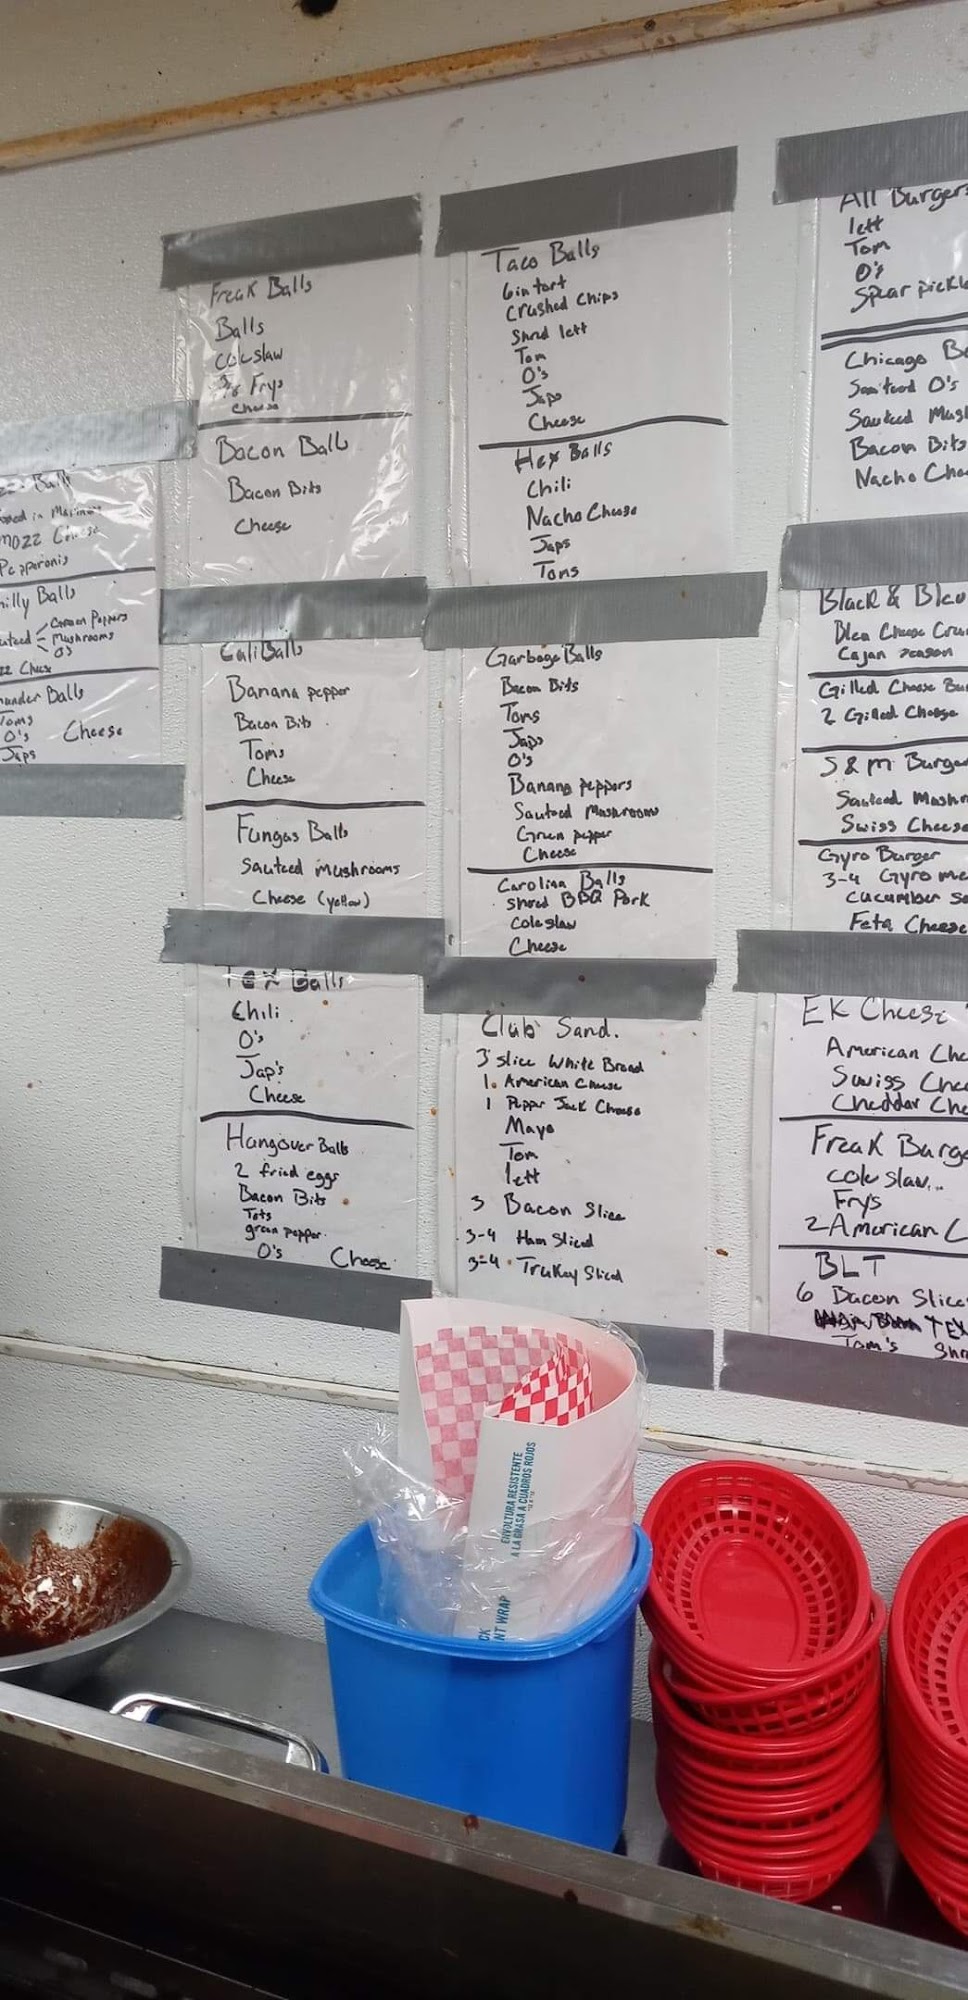 Balls
in Marinara
mozz Cheese
Pepperonis
illy Balls
Green Peppers
Mushrooms
O's
Balls
Toms
O's Cheese
Japs
Freak Balls
Balls
cole slaw
Frys
Cheese
Bacon Balls
Bacon Bits
Cheese
Cali Balls
Banana pepper
Bacon Bits
Toms
Cheese
Fungas Balls
Sauteed mushrooms
Cheese (yellow)
Tex Balls
Chili
O's
Jap's
Cheese
Hangover Balls
2 fried eggs
Bacon Bits
Tots
green pepper
O's Cheese
Taco Balls
6in tort
Crushed Chips
Shred lett
Tom
O's
Japs
Cheese
Hex Balls
Chili
Nacho Cheese
Japs
Toms
Garbage Balls
Bacon Bits
Toms
Japs
O's
Banana peppers
Sauteed Mushrooms
Green pepper
Cheese
Carolina Balls
shred BBQ Pork
Coleslaw
Cheese
Club Sand.
3 slice White Bread
1 American Cheese
1 Pepper Jack Cheese
Mayo
Tom
lett
3 Bacon Slice
3-4 Ham Sliced
3-4 Trukey Sliced
All Burgers
lett
Tom
O's
Spear pickl
Chicago B
Sauteed O's
Sauteed Mus
Bacon Bits
Nacho Che
Black & Bleu
Bleu Cheese Cru
Cajan season
Gilled Cheese Bu
2 Gilled Cheese
S & M Burge
Sauteed Mush
Swiss Cheese
Gyro Burger
3-4 Gyro me
cucumber s
Feta Cheese
EK Cheese
American Che
Swiss Chee
Cheddar Che
Freak Burge
cole slaw..
Frys
2 American C
BLT
6 Bacon Slice
TEX
Tom's Shr
ENVOLTURA RESISTENTE
A LA GRASA A CUADROS ROJOS
CK
NT WRAP